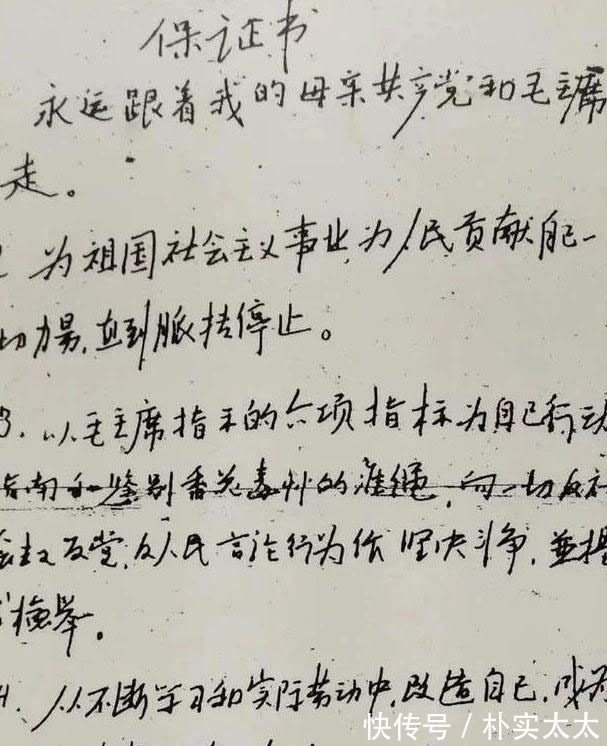 保证书
永远跟着我的母亲共产党和毛主席
走。
为祖国社会主义事业,为人民贡献自己一
切力量,直到脉搏停止。
3. 以毛主席指示的六项指标为自己行动
指南和鉴别香花毒草的准绳,向一切反社
会主义反党,反人民言论行为作坚决斗争,並揭
检举。
4. 从不断学习和实际劳动中,改造自己,成为
快传号/朴实太太